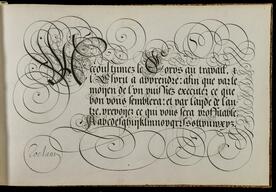 Accoustumez le Corps au trauail, &
l'Esprit a apprendre: afin que par le
moyen de l'vn puissiez executer ce que
bon vous semblera: et par l'ayde de l'au-
tre, preuoyez ce qui vous sera profitable.
Aabcdefghijklmnopqrsstuvwxyz.